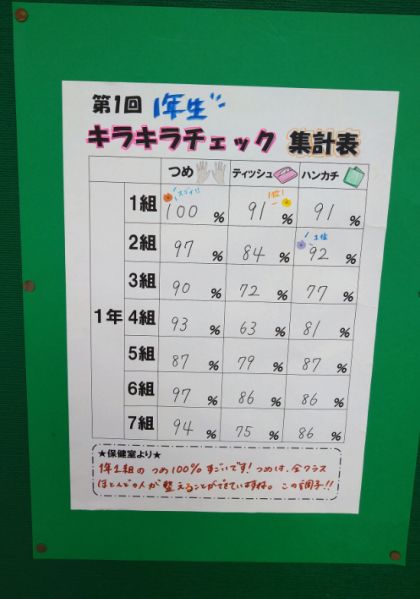 第1回 1年生
キラキラチェック 集計表
つめ ティッシュ ハンカチ
1年
1組 100% 91% 91%
2組 97% 84% 92%
3組 90% 72% 77%
4組 93% 63% 81%
5組 87% 79% 87%
6組 97% 86% 86%
7組 94% 75% 86%
★保健室より★
1年1組の つめ100% すごいです! つめは、全クラス
ほとんどの人が 整えることができていますね。この調子!!